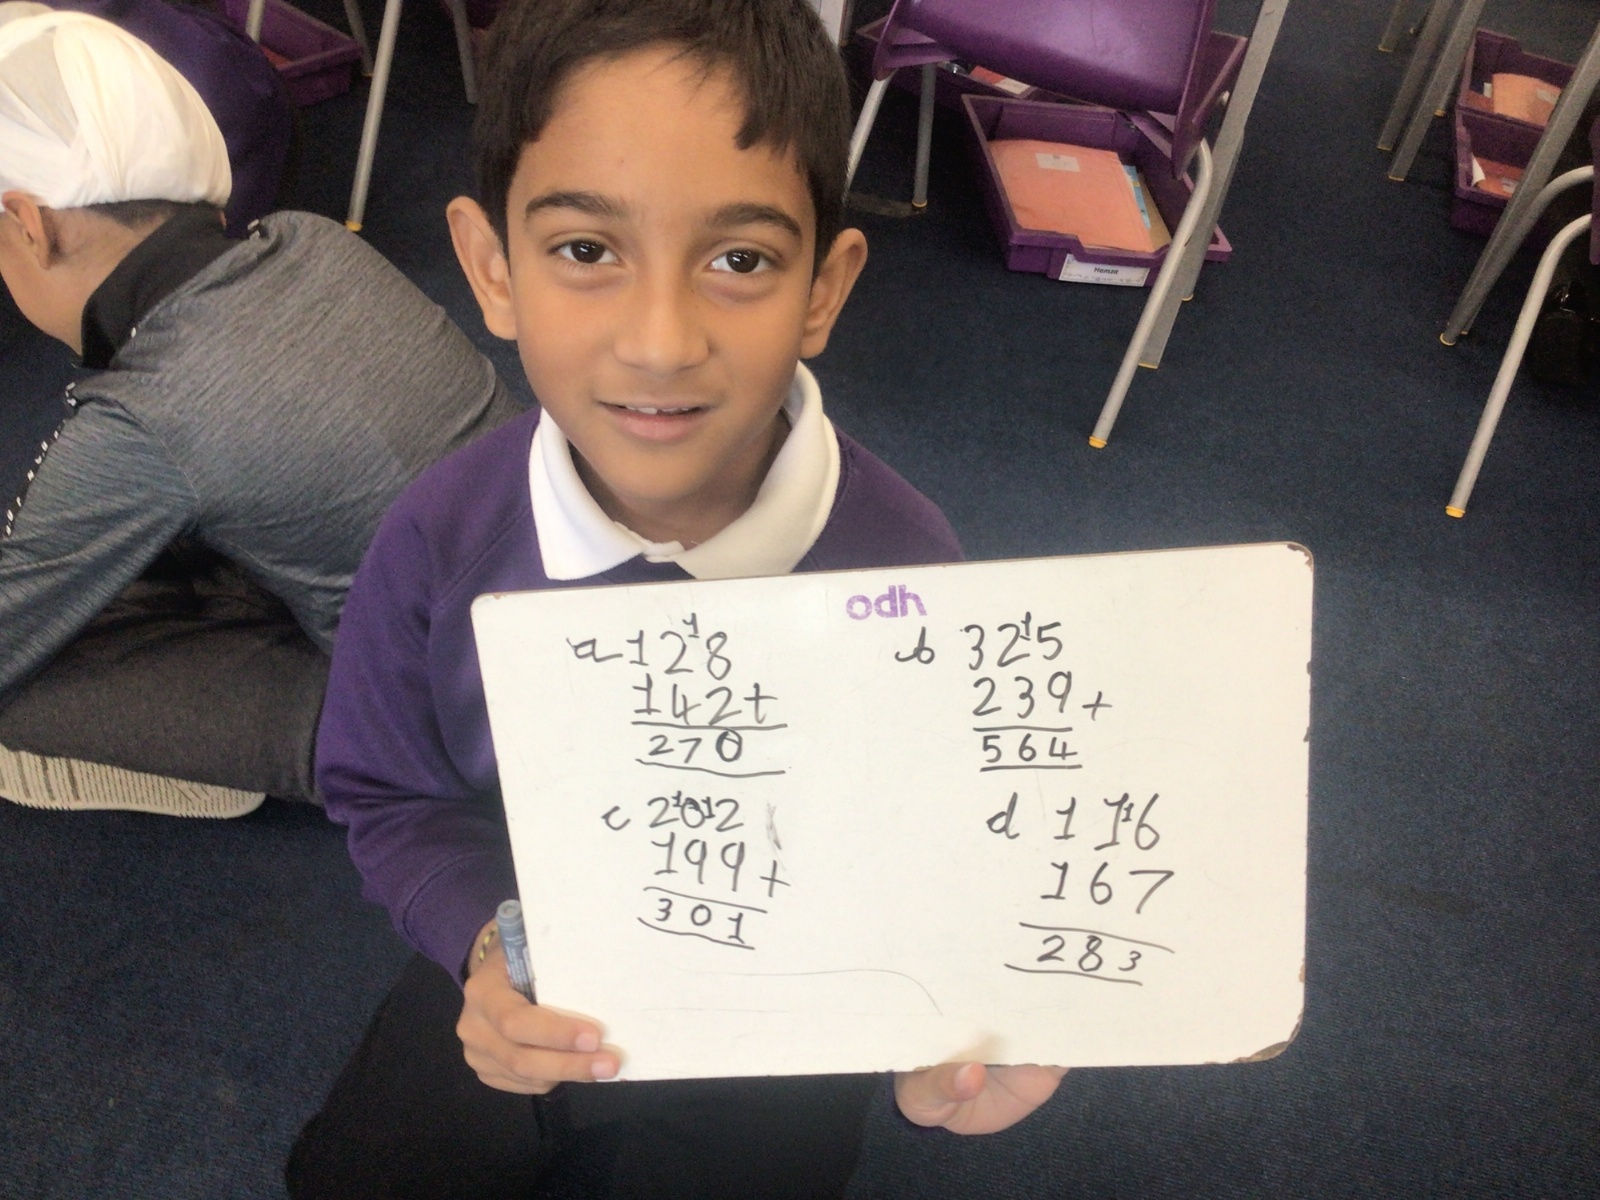 odh
a 128
1
142+
270
b 325
1
239+
564
c 202
1 1
199+
301
d 116
1
167
283
Hamza